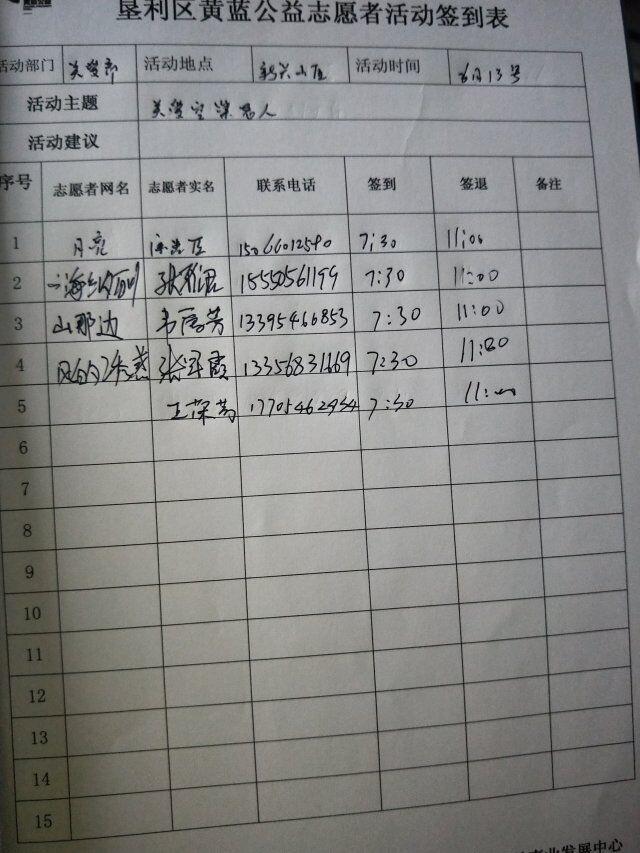 垦利区黄蓝公益志愿者活动签到表
活动部门 关爱部 活动地点 活动时间 6月13号
活动主题 关爱空巢老人
活动建议
序号 志愿者网名 志愿者实名 联系电话 签到 签退 备注
1 月亮 15066012590 7:30 11:00
2 15550561199 7:30 11:00
3 山那边 13395466853 7:30 11:00
4 13356831669 7:30 11:00
5 17705462954 7:30 11:00
6
7
8
9
10
11
12
13
14
15
业发展中心